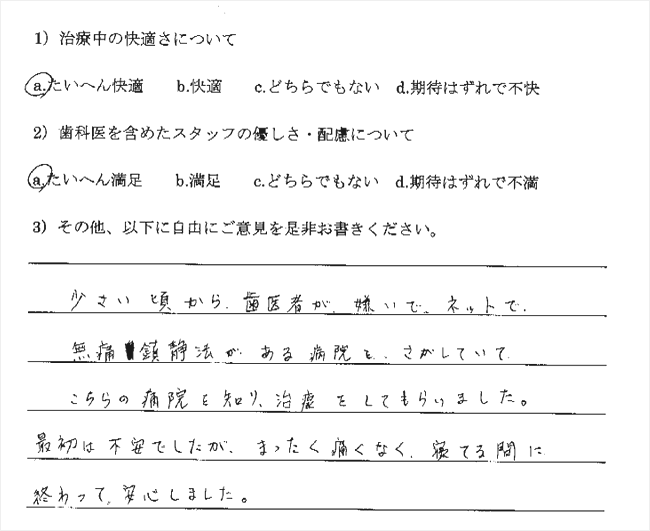 1) 治療中の快適さについて
a.たいへん快適 b.快適 c.どちらでもない d.期待はずれで不快
2) 歯科医を含めたスタッフの優しさ・配慮について
a.たいへん満足 b.満足 c.どちらでもない d.期待はずれで不満
3) その他、以下に自由にご意見を是非お書きください。
少さい頃から、歯医者が、嫌いで、ネットで、
無痛鎮静法が、ある病院を、さがしていて、
こちらの病院を知り、治療をしてもらいました。
最初は不安でしたが、まったく痛くなく、寝てる間に
終わって、安心しました。